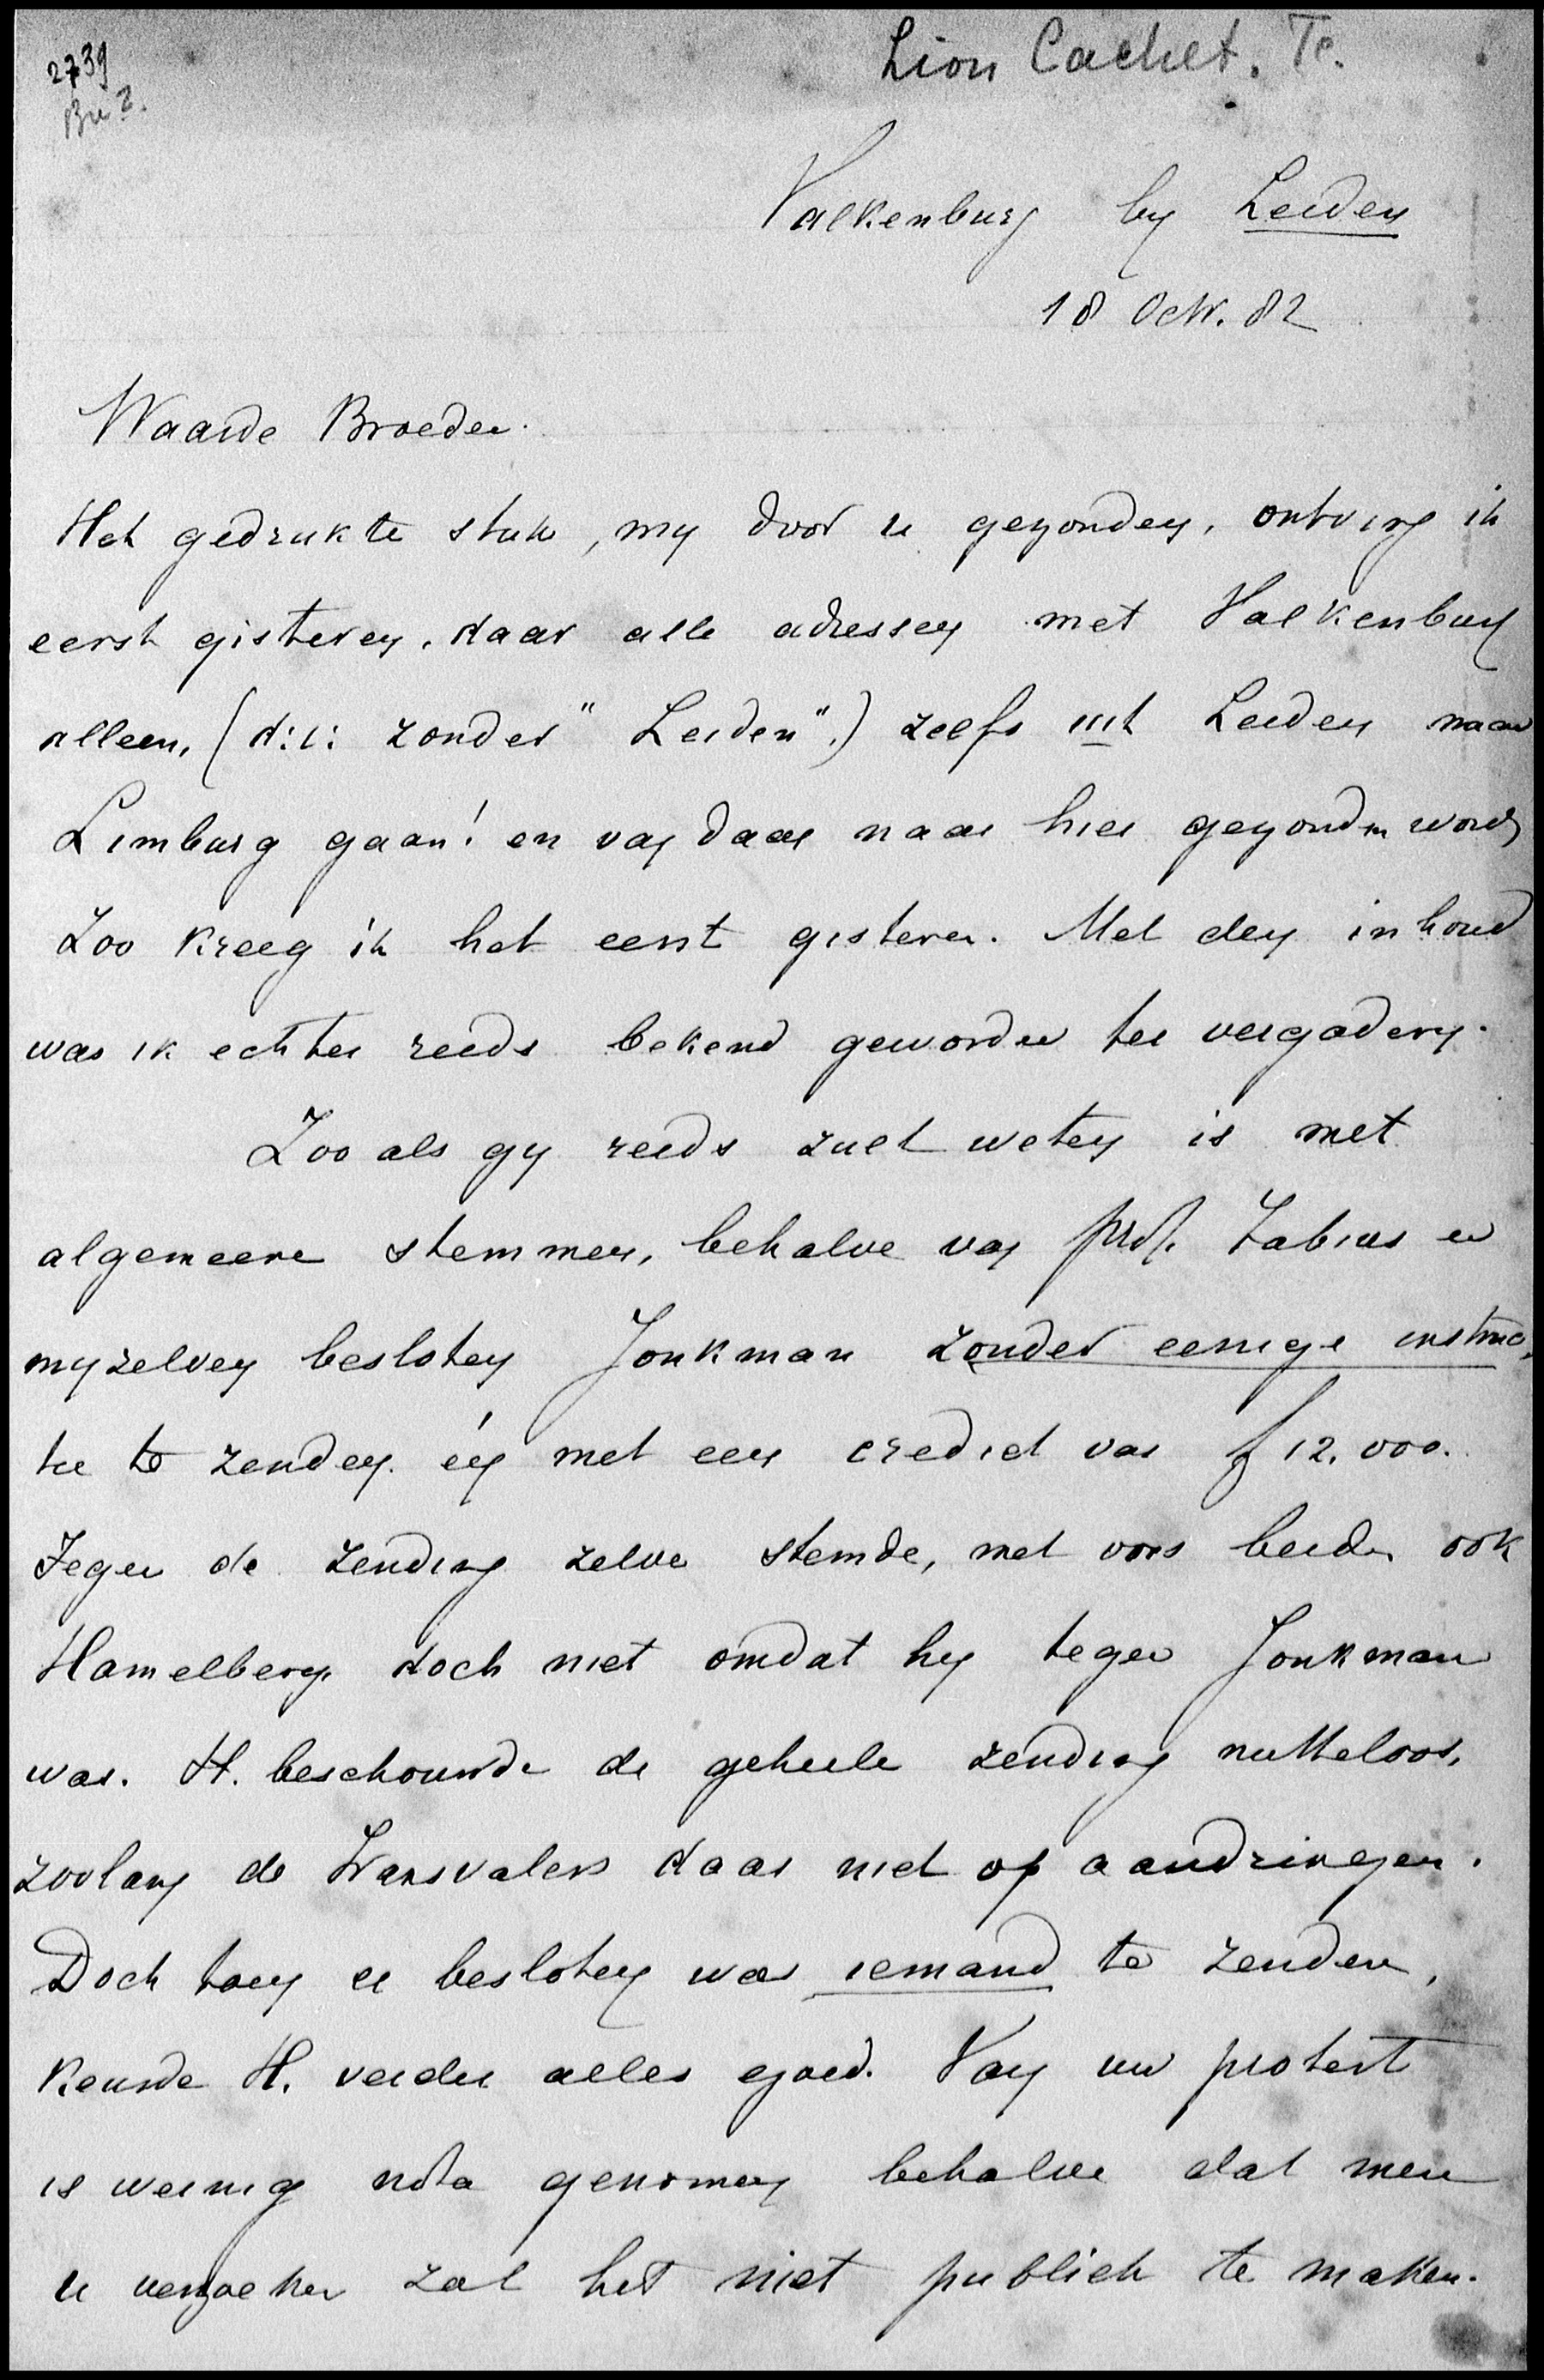 2739
Br 2.
Lion Cachet. Te.
Valkenburg by Leiden
18 Octr. 82
Waarde Broeder.
Het gedrukte stuk, my door u gezonden, ontving ik
eerst gisteren, daar alle adressen met Valkenburg
alleen, (d:i: zonder "Leiden".) zelfs uit Leiden naar
Limburg gaan! en van daar naar hier gezonden word,
Zoo kreeg ik het eerst gisteren. Met den inhoud
was ik echter reeds bekend geworden ter vergadering.
Zoo als gy reeds zult weten is met
algemeene stemmen, behalve van Prof. Fabius en
myzelven besloten Jonkman zonder eenige instruc,
tie te zenden én met een crediet van f 12.000.
Tegen de zending zelve stemde, met ons beiden ook
Hamelberg doch niet omdat hy tegen Jonkman
was. H. beschouwde de geheele zending nutteloos,
zoolang de Transvalers daar niet op aandringen.
Doch toen er besloten was iemand te zenden,
keurde H. verder alles goed. Van uw protest
is weinig nota genomen behalve dat men
u verzoeken zal het niet publiek te maken.